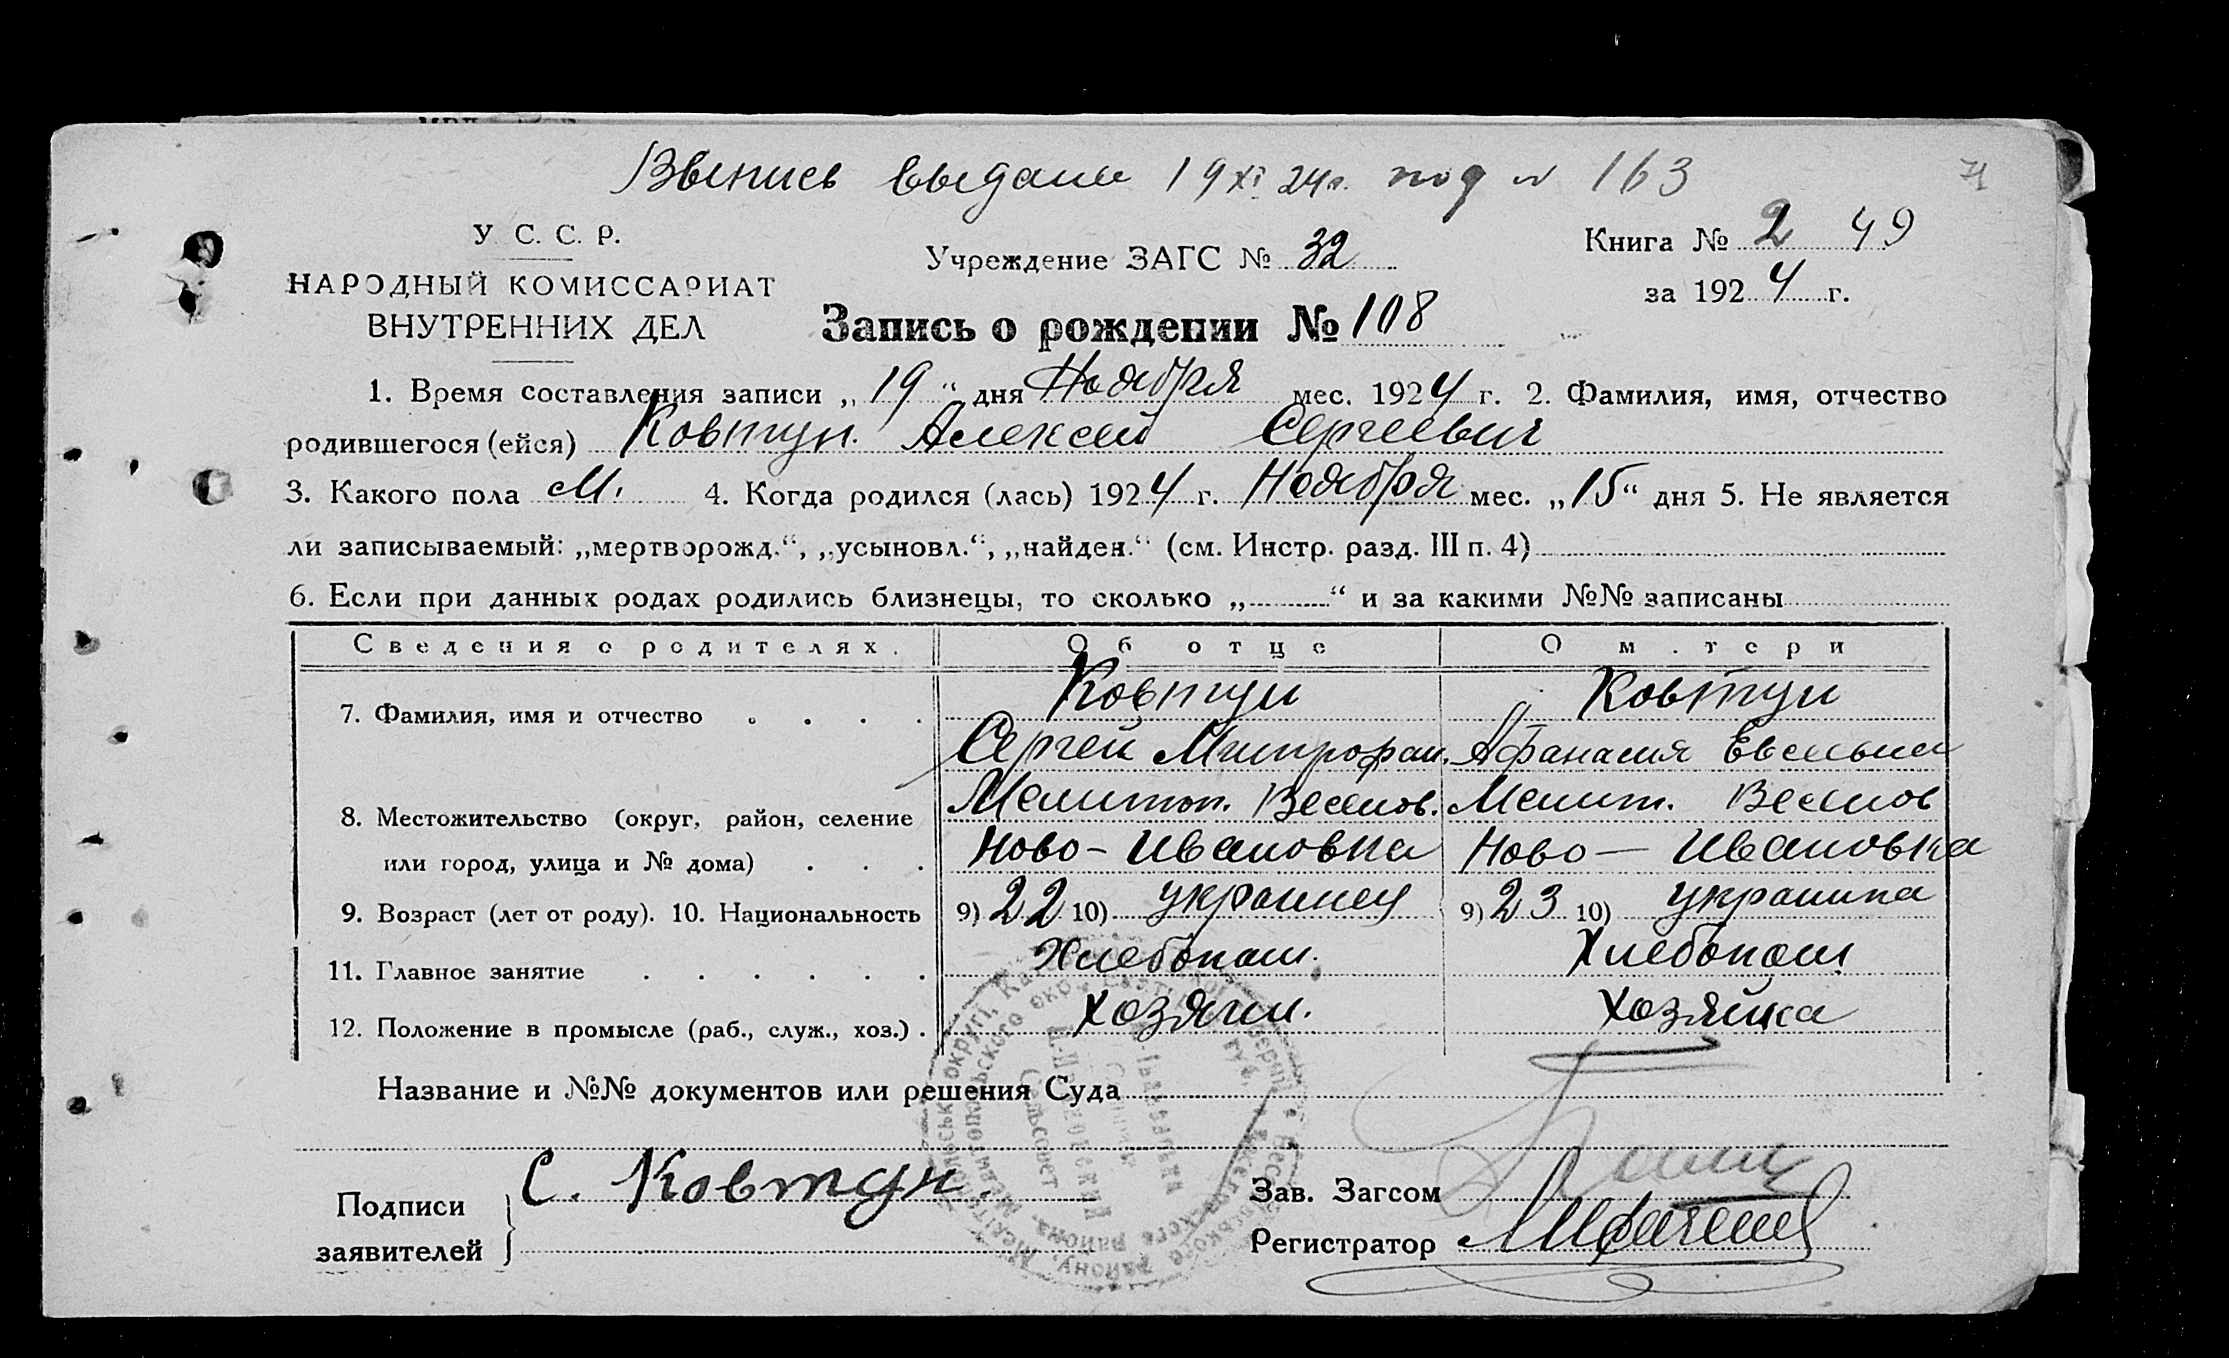 Выпись выдана 19 XI 24 г. под № 163
У. С. С. Р.
НАРОДНЫЙ КОМИССАРИАТ
ВНУТРЕННИХ ДЕЛ
Учреждение ЗАГС № 32
Книга № 2 49
за 1924 г.
Запись о рождении № 108
1. Время составления записи „19“ дня Ноября мес. 1924 г. 2. Фамилия, имя, отчество
родившегося (ейся) Ковтун Алексей Сергеевич
3. Какого пола М. 4. Когда родился (лась) 1924 г. Ноября мес. „15“ дня 5. Не является
ли записываемый: „мертворожд.“, „усыновл.“, „найден.“ (см. Инстр. разд. III п. 4)
6. Если при данных родах родились близнецы, то сколько „ “ и за какими №№ записаны
Сведения о родителях. Об отце О матери
7. Фамилия, имя и отчество Ковтун Ковтун
Сергей Митрофан. Афанасия
8. Местожительство (округ, район, селение Мелитоп. Веселов. Мелит. Веселов
или город, улица и № дома) Ново-Ивановка Ново-Ивановка
9. Возраст (лет от роду). 10. Национальность 9) 22 10) украинец 9) 23 10) украинка
11. Главное занятие Хлебопаш. Хлебопаш
12. Положение в промысле (раб., служ., хоз.) хозяин. хозяйка
Название и №№ документов или решения Суда
Подписи
заявителей
С. Ковтун.
Зав. Загсом
Регистратор